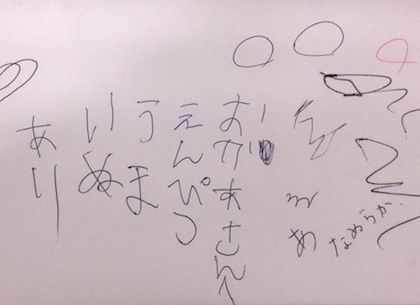 なめらか
あ
おかあさんへ
えんぴつ
うま
いぬ
あり